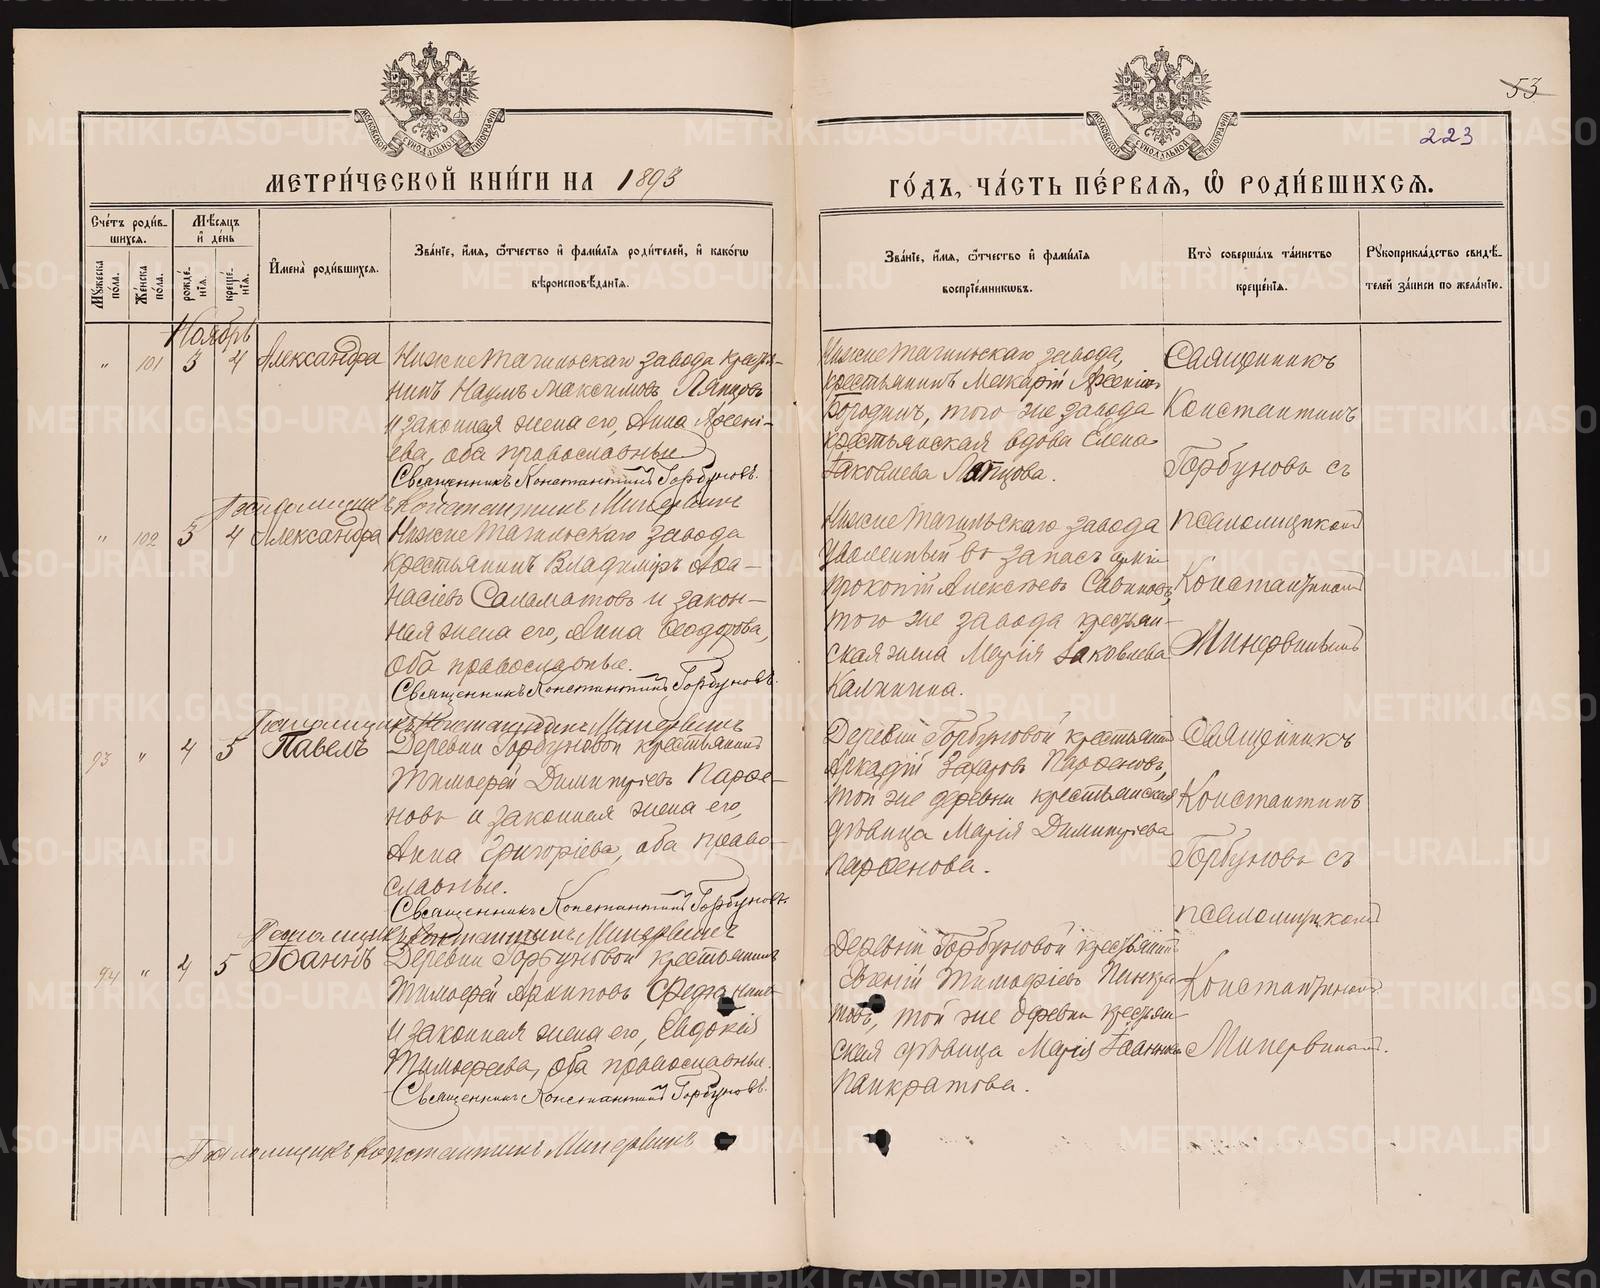 53
223
МЕТРИ́ЧЕСКОЙ КНИ́ГИ НА 1893
ГО́ДЪ, ЧА́СТЬ ПЕ́РВАЯ, Ѽ РОДИ́ВШИХСЯ.
Сче́тъ роди́в-
шихся.
Мѣ́сяцъ
и҆ де́нь
Мꙋ́жеска
по́ла.
Же́нска
по́ла.
рожде́-
нїя.
креще́-
нїя.
И҆мена̀ роди́вшихся.
Зва́нїе, и҆́мя, ѻ҆́тчество и҆ фами́лїя роди́телей, и҆ како́гѡ
вѣроисповѣ́данїя.
Зва́нїе, и҆́мя, ѻ҆́тчество и҆ фами́лїя
воспрїе́мникѡвъ.
Кто̀ соверша́лъ та́инство
креще́нїя.
Рꙋкоприкла́дство свидѣ́-
телей за́писи по жела́нїю.
Ноябрь
" 101 3 4 Александра
Нижнетагильскаго завода крестья-
нинъ Наумъ Максимовъ Ляпцовъ
и законная жена его, Анна Арсень-
ева, оба православные
Священникъ Константинъ Горбуновъ.
Псаломщикъ Константинъ Минервинъ
Нижнетагильскаго завода,
крестьянинъ Макарій Арсеніевъ
Бородинъ, того же завода
крестьянская вдова Елена
Іаковлева Ляпцова.
Священникъ
Константинъ
Горбуновъ съ
псаломщикомъ
Константиномъ
Минервинымъ
" 102 3 4 Александра
Нижнетагильскаго завода
крестьянинъ Владиміръ Аѳа-
насіевъ Саламатовъ и закон-
ная жена его, Анна Ѳеодорова,
оба православные.
Священникъ Константинъ Горбуновъ.
Псаломщикъ Константинъ Минервинъ
Нижнетагильскаго завода
уволенный въ запасъ арміи
Прокопій Алексѣевъ Савиновъ,
того же завода крестьян-
ская жена Марія Іаковлева
Калинина.
93 " 4 5 Павелъ
Деревни Горбуновой крестьянинъ
Тимоѳей Димитріевъ Парѳе-
новъ и законная жена его,
Анна Григоріева, оба право-
славные.
Священникъ Константинъ Горбуновъ.
Псаломщикъ Константинъ Минервинъ
Деревни Горбуновой крестьянинъ
Аркадій Захаровъ Парѳеновъ,
той же деревни крестьянская
дѣвица Марія Димитріева
Парѳенова.
Священникъ
Константинъ
Горбуновъ съ
псаломщикомъ
Константиномъ
Минервинымъ.
94 " 4 5 Іоаннъ
Деревни Горбуновой крестьянинъ
Тимоѳей Архиповъ
и законная жена его, Евдокія
Тимоѳеева, оба православные.
Священникъ Константинъ Горбуновъ.
Псаломщикъ Константинъ Минервинъ
Деревни Горбуновой крестьянинъ
Евгеній Тимоѳіевъ Панкра-
товъ, той же деревни крестьян-
ская дѣвица Марія Іоаннова
Панкратова.